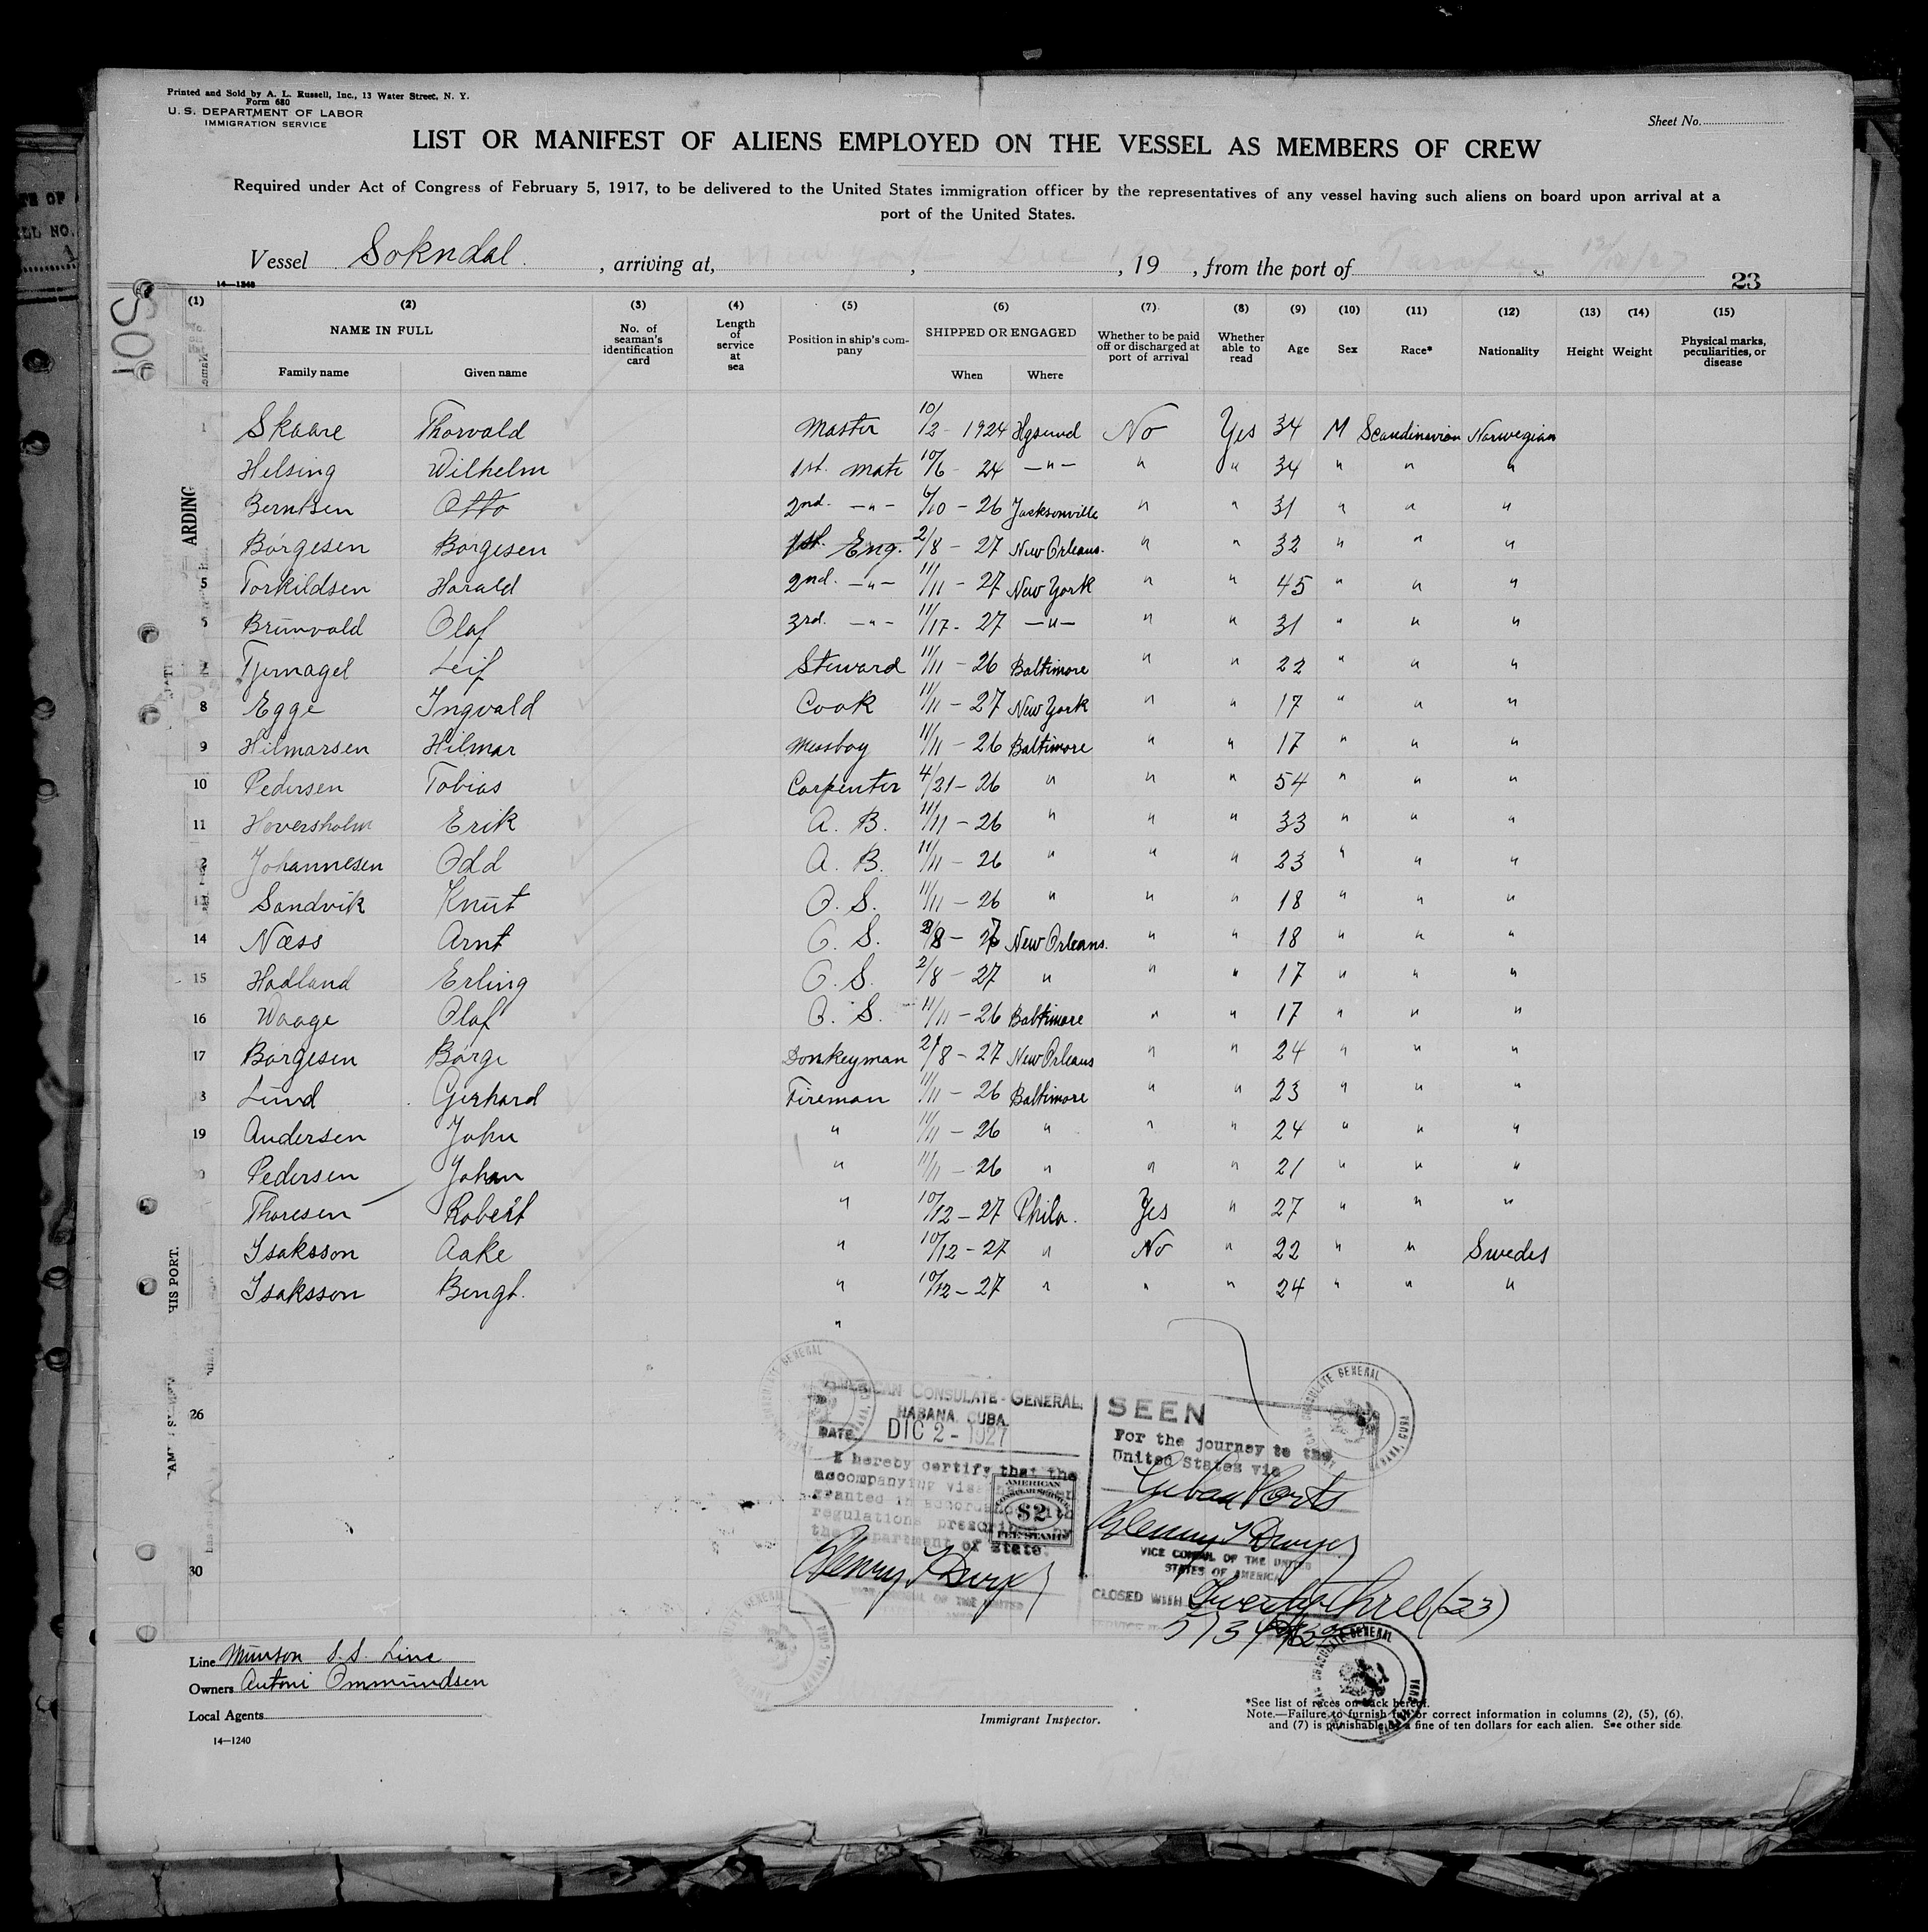 Printed and Sold by A. L. Russell, Inc., 13 Water Street, N. Y.
Form 680
U. S. DEPARTMENT OF LABOR
IMMIGRATION SERVICE
Sheet No.
LIST OR MANIFEST OF ALIENS EMPLOYED ON THE VESSEL AS MEMBERS OF CREW
Required under Act of Congress of February 5, 1917, to be delivered to the United States immigration officer by the representatives of any vessel having such aliens on board upon arrival at a
port of the United States.
Vessel Sokndal, arriving at, , 19 , from the port of
14—1240 23
(1) (2) (3) (4) (5) (6) (7) (8) (9) (10) (11) (12) (13) (14) (15)
NAME IN FULL No. of seaman's identification card Length of service at sea Position in ship's company SHIPPED OR ENGAGED Whether to be paid off or discharged at port of arrival Whether able to read Age Sex Race* Nationality Height Weight Physical marks, peculiarities, or disease
Family name Given name When Where
1 Skaare Thorvald Master 10/2 - 1924 Hgsund No Yes 34 M Scandinavian Norwegian
Helsing Wilhelm 1st. mate 10/6 - 24 —"— " " 34 " " "
Berntsen Otto 2nd. —"— 6/10 - 26 Jacksonville " " 31 " " "
Börgesen Borgesen 1st. Eng. 2/8 - 27 New Orleans. " " 32 " " "
5 Torkildsen Harald 2nd. —"— 11/11 - 27 New York " " 45 " " "
Brunvold Olaf 3rd. —"— 11/17 - 27 —"— " " 31 " " "
Tjernagel Leif Steward 11/11 - 26 Baltimore " " 22 " " "
8 Egge Ingvald Cook 11/11 - 27 New York " " 17 " " "
9 Hilmarsen Hilmar Messboy 11/11 - 26 Baltimore " " 17 " " "
10 Pedersen Tobias Carpenter 4/21 - 26 " " " 54 " " "
11 Hoversholm Erik A. B. 11/11 - 26 " " " 33 " " "
Johannesen Odd A. B. 11/11 - 26 " " " 23 " " "
13 Sandvik Knut O. S. 11/11 - 26 " " " 18 " " "
14 Næss Arnt O. S. 2/8 - 27 New Orleans. " " 18 " " "
15 Hadland Erling O. S. 2/8 - 27 " " " 17 " " "
16 Waage Olaf O. S. 11/11 - 26 Baltimore " " 17 " " "
17 Børgesen Børge Donkeyman 2/8 - 27 New Orleans " " 24 " " "
Lund Gerhard Fireman 11/11 - 26 Baltimore " " 23 " " "
19 Andersen John " 11/11 - 26 " " " 24 " " "
Pedersen Johan " 11/11 - 26 " " " 21 " " "
Thoresen Robert " 10/12 - 27 Phila. Yes " 27 " " "
Isaksson Aake " 10/12 - 27 " No " 22 " " Swedes
Isaksson Bengt. " 10/12 - 27 " " " 24 " " "
"
26
30
AMERICAN CONSULATE-GENERAL,
HABANA, CUBA.
DATE DIC 2 - 1927
I hereby certify that the
accompanying visa has been
granted in accordance with
regulations prescribed by
the Department of State.
AMERICAN
CONSULAR SERVICE
$2
FEE STAMP
SEEN
For the journey to the
United States via
Cuban Ports
VICE CONSUL OF THE UNITED
STATES OF AMERICA
CLOSED WITH Twenty three (23)
Line Munson S.S. Line
Owners Antoni Ommundsen
Local Agents
14—1240
Immigrant Inspector.
*See list of races on back hereof.
Note.—Failure to furnish full or correct information in columns (2), (5), (6),
and (7) is punishable by a fine of ten dollars for each alien. See other side